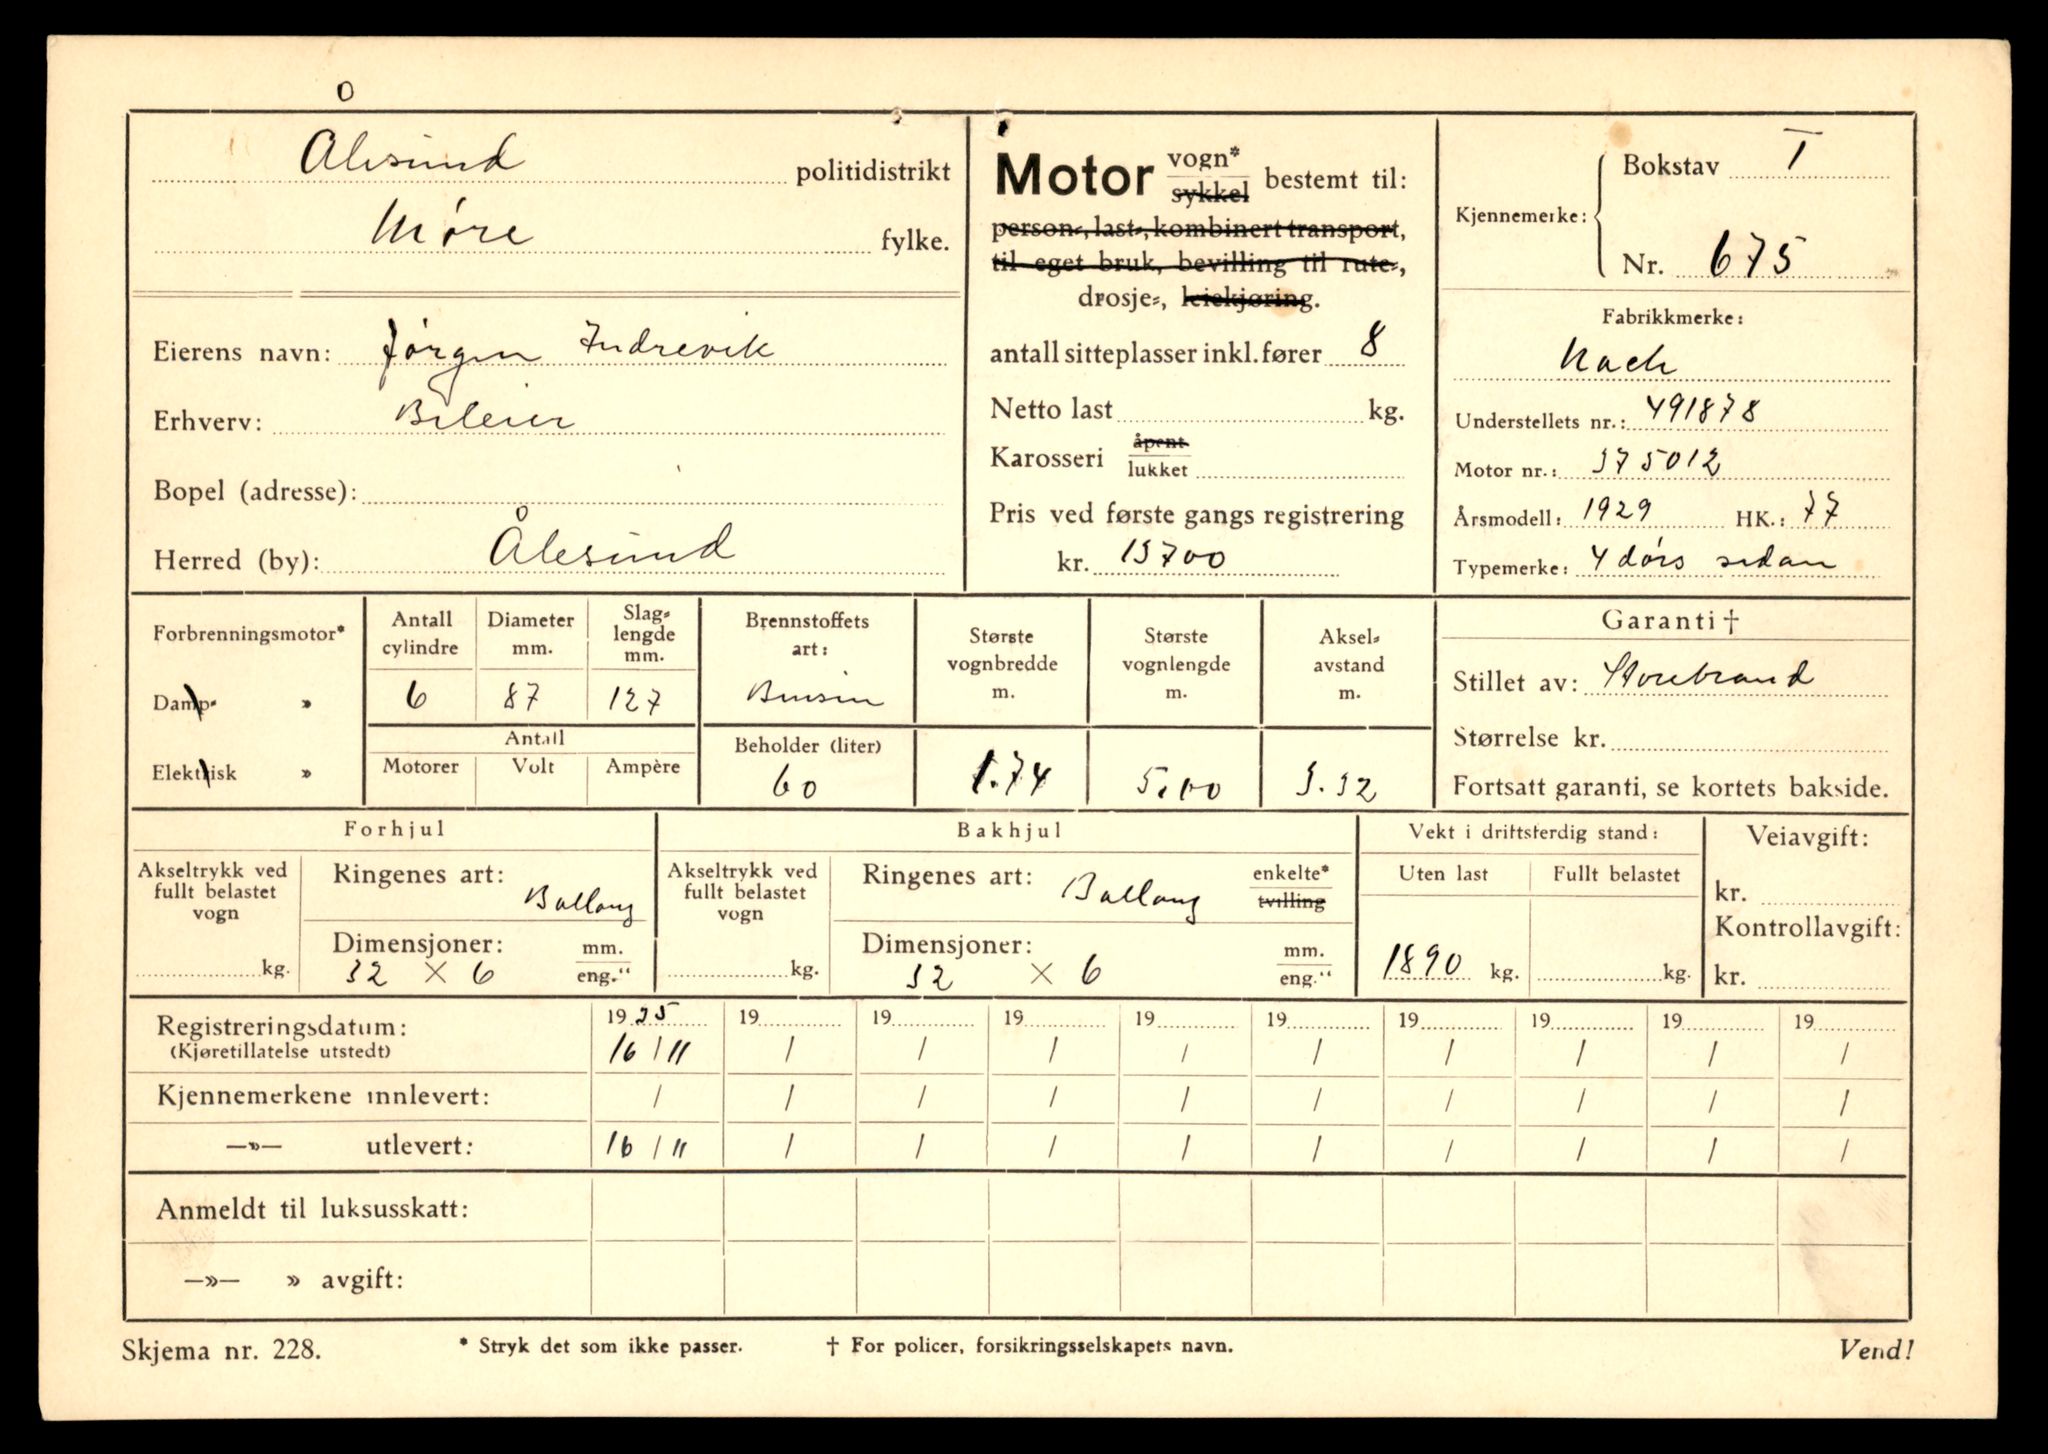 Ålesund politidistrikt
Møre fylke.
Eierens navn: Jørgen Indrevik
Erhverv: Bileier
Bopel (adresse):
Herred (by): Ålesund
Motor vogn* sykkel bestemt til:
person-, last-, kombinert transport,
til eget bruk, bevilling til rute-,
drosje-, leiekjøring.
antall sitteplasser inkl. fører 8
Netto last kg.
Karosseri åpent lukket
Pris ved første gangs registrering
kr. 13700
Kjennemerke: Bokstav T
Nr. 675
Fabrikkmerke:
Nash
Understellets nr.: 491878
Motor nr.: 375012
Årsmodell: 1929 HK.: 77
Typemerke: 4 dørs sedan
Forbrenningsmotor*
Damp- »
Elektrisk »
Antall cylindre
6
Diameter mm.
87
Slag-lengde mm.
127
Antall
Motorer Volt Ampère
Brennstoffets art:
Bensin
Beholder (liter)
60
Største vognbredde m.
1.74
Største vognlengde m.
5.00
Aksel-avstand m.
3.32
Garanti †
Stillet av: Storebrand
Størrelse kr.
Fortsatt garanti, se kortets bakside.
Forhjul
Akseltrykk ved fullt belastet vogn
kg.
Ringenes art: Ballong
Dimensjoner: mm. eng."
32 × 6
Bakhjul
Akseltrykk ved fullt belastet vogn
kg.
Ringenes art: Ballong enkelte* tvilling
Dimensjoner: mm. eng."
32 × 6
Vekt i driftsferdig stand:
Uten last Fullt belastet
1890 kg. kg.
Veiavgift:
kr.
Kontrollavgift:
kr.
Registreringsdatum: 1935 19 19 19 19 19 19 19 19 19
(Kjøretillatelse utstedt) 16/11 / / / / / / / / /
Kjennemerkene innlevert: / / / / / / / / / /
—»— utlevert: 16/11 / / / / / / / / /
Anmeldt til luksusskatt:
—»— » avgift:
Skjema nr. 228. * Stryk det som ikke passer. † For policer, forsikringsselskapets navn. Vend!